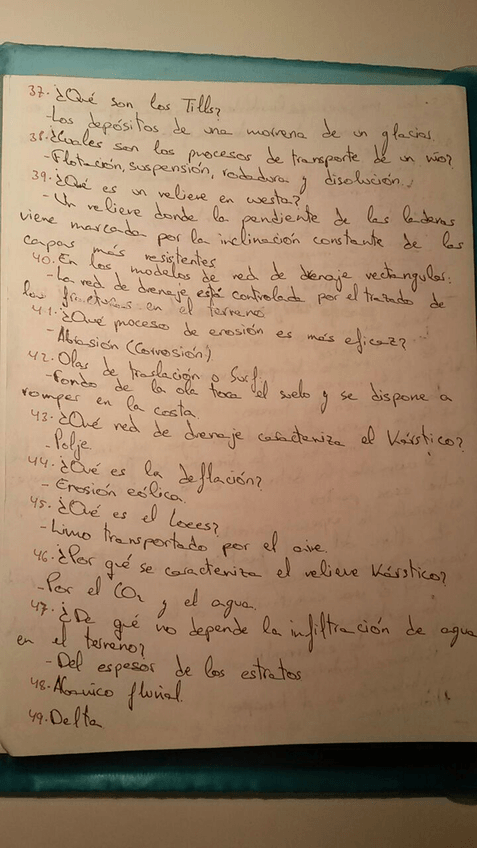 37. ¿Qué son los Tills?
- Los depósitos de una morrena de un glaciar.
38. ¿Cuales son los procesos de transporte de un río?
- Flotación, suspensión, rodadura y disolución.
39. ¿Qué es un relieve en cuesta?
- Un relieve donde la pendiente de las laderas
viene marcada por la inclinación constante de las
capas más resistentes
40. En los modelos de red de drenaje rectangular:
- La red de drenaje está controlada por el trazado de
las fracturas en el terreno
41. ¿Qué proceso de erosión es más eficaz?
- Abrasión (Corrosión)
42. Olas de traslación o Surf
- Fondo de la ola toca el suelo y se dispone a
romper en la costa.
43. ¿Qué red de drenaje caracteriza el Kárstico?
- Polje.
44. ¿Qué es la deflación?
- Erosión eólica.
45. ¿Qué es el Loees?
- Limo transportado por el aire.
46. ¿Por qué se caracteriza el relieve Kárstico?
- Por el CO₂ y el agua.
47. ¿De qué no depende la infiltración de agua
en el terreno?
- Del espesor de los estratos
48. Abanico fluvial.
49. Delta